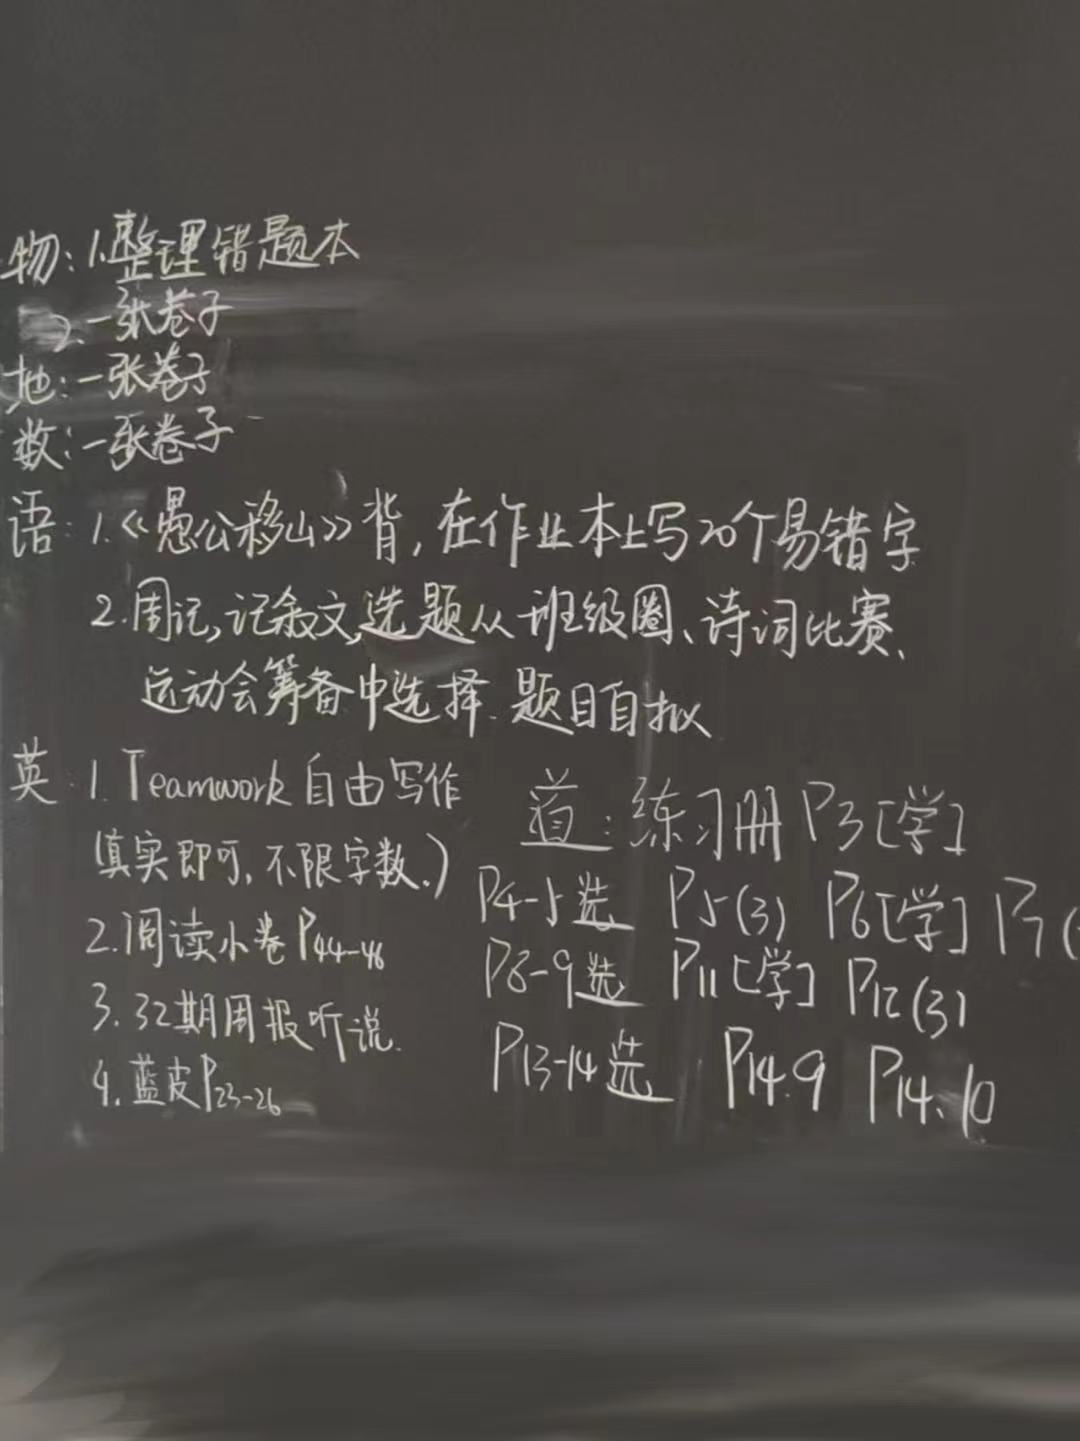 物: 1.整理错题本
2.一张卷子
地:一张卷子
数:一张卷子
语: 1.《愚公移山》背,在作业本上写20个易错字
2.周记,记叙文,选题从班级圈、诗词比赛、
运动会筹备中选择.题目自拟
英 1. Teamwork自由写作
(真实即可,不限字数.)
2.阅读小卷P44-46
3. 32期周报听说.
4. 蓝皮P23-26
道:练习册 P3[学]
P4-5选 P5(3) P6[学] P7(
P8-9选 P11[学] P12(3)
P13-14选 P14.9 P14、10